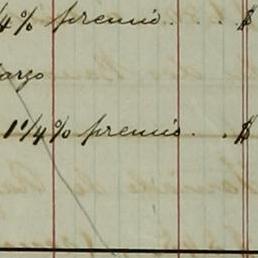 /4% premio . . . $
argo
1 1/4% premio . . $